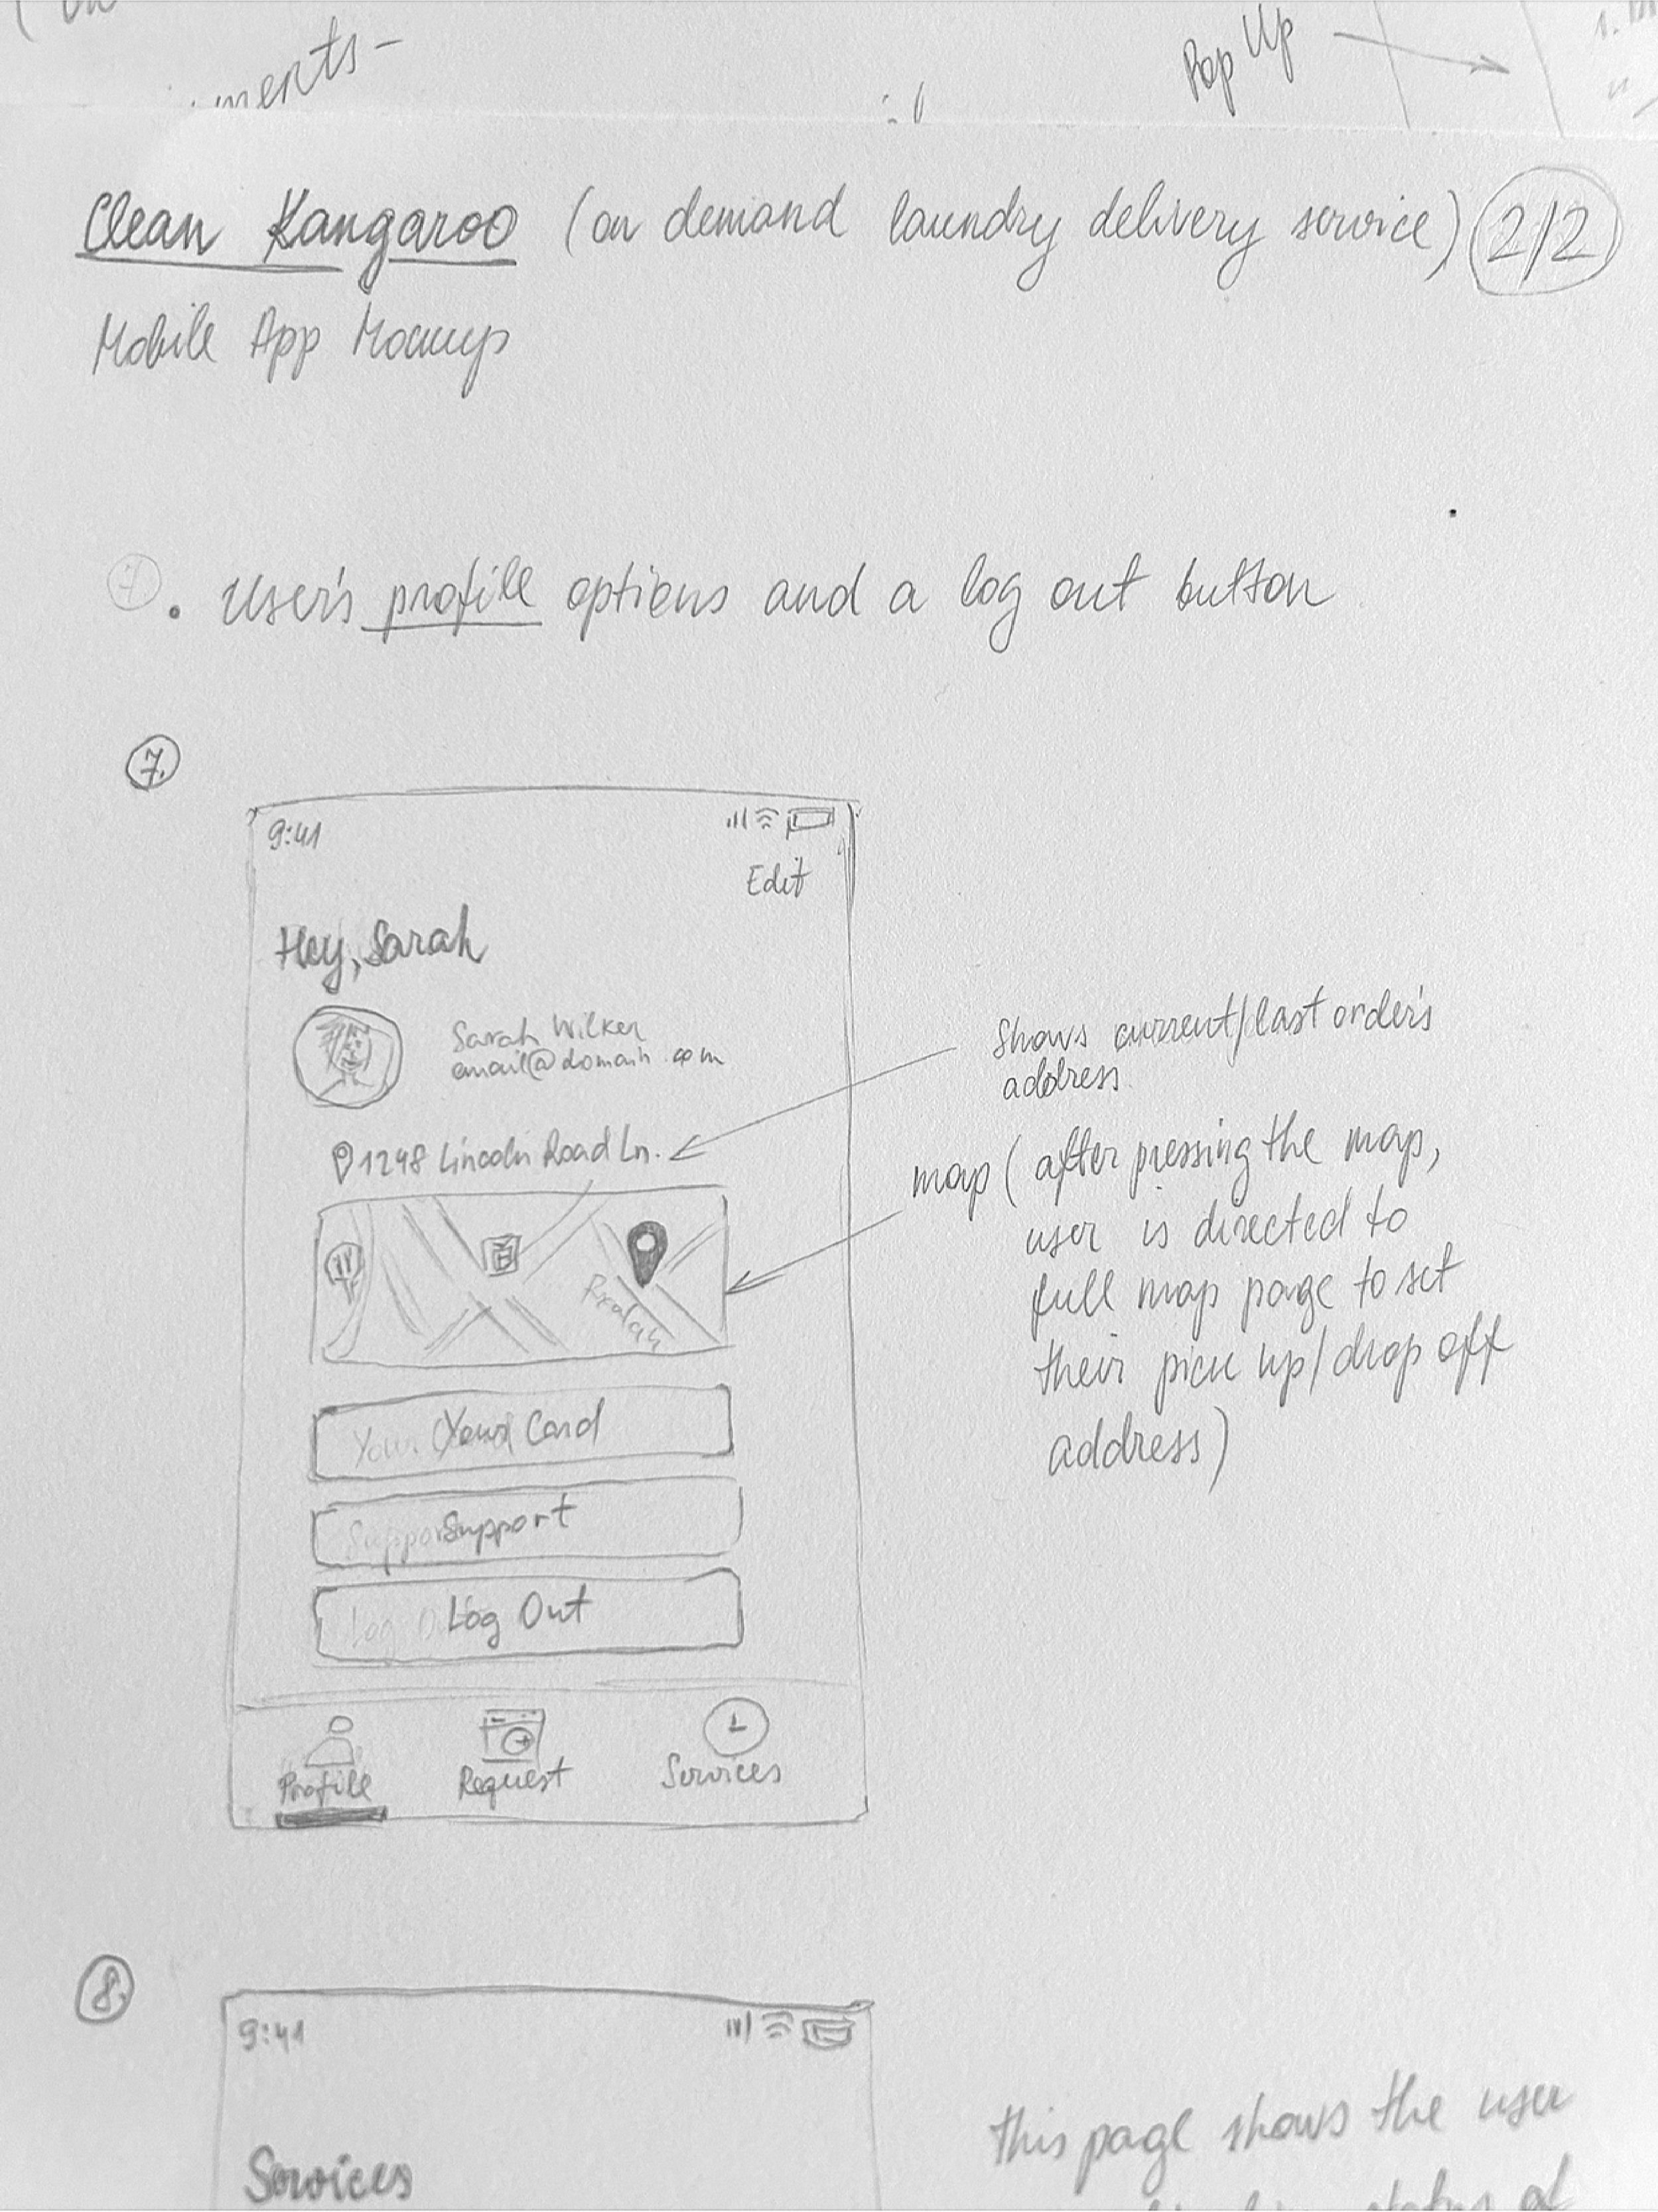 ments-
Pop Up
Clean Kangaroo (on demand laundry delivery service) 2/2
Mobile App Mocup
7. User's profile options and a log out button
7.
9:41
Edit
Hey, Sarah
Sarah Wilker
email@domain.com
1248 Lincoln Road Ln.
Shows current/last order's
address
map (after pressing the map,
user is directed to
full map page to set
their pick up/drop off
address)
Your Card
Support
Log Out
Profile
Request
Services
8.
9:41
Services
this page shows the user
status of